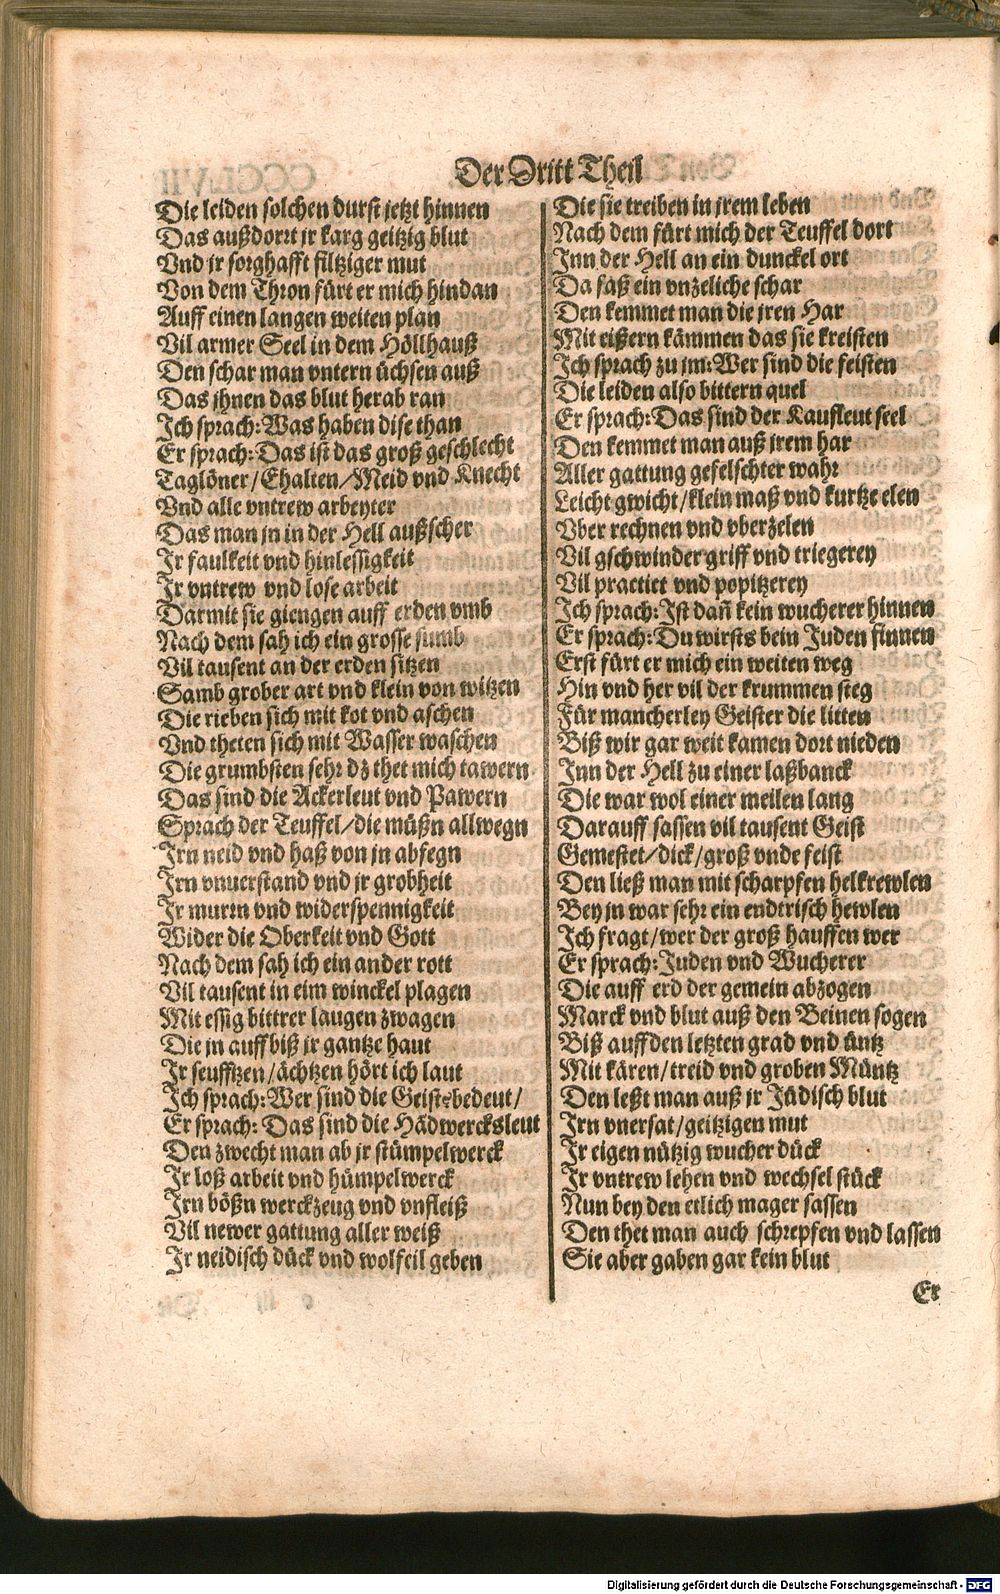 Der Dritt Theil
Die leiden solchen durst jetzt hinnen
Das außdorrt jr karg geitzig blut
Vnd jr sorghafft filtziger mut
Von dem Thron fürt er mich hindan
Auff einen langen weiten plan
Vil armer Seel in dem Höllhauß
Den schar man vntern üchsen auß
Das jhnen das blut herab ran
Ich sprach: Was haben dise than
Er sprach: Das ist das groß geschlecht
Taglöner/Ehalten/Meid vnd Knecht
Vnd alle vntrew arbeyter
Das man jn in der Hell außscher
Ir faulkeit vnd hinlessigkeit
Ir vntrew vnd lose arbeit
Darmit sie giengen auff erden vmb
Nach dem sah ich ein grosse sumb
Vil tausent an der erden sitzen
Samb grober art vnd klein von witzen
Die rieben sich mit kot vnd aschen
Vnd theten sich mit Wasser waschen
Die grumbsten sehr dz thet mich tawern
Das sind die Ackerleut vnd Pawern
Sprach der Teuffel/die müßn allwegn
Irn neid vnd haß von jn abfegn
Irn vnuerstand vnd jr grobheit
Ir murrn vnd widerspennigkeit
Wider die Oberkeit vnd Gott
Nach dem sah ich ein ander rott
Vil tausent in eim winckel plagen
Mit essig bittrer laugen zwagen
Die jn auffbiß jr gantze haut
Ir seufftzen/ächtzen hört ich laut
Ich sprach: Wer sind die Geist bedeut/
Er sprach: Das sind die Hādwercksleut
Den zwecht man ab jr stümpelwerck
Ir loß arbeit vnd hümpelwerck
Irn bößn werckzeug vnd vnfleiß
Vil newer gattung aller weiß
Ir neidisch dück vnd wolfeil geben
Die sie treiben in jrem leben
Nach dem fürt mich der Teuffel dort
Inn der Hell an ein dunckel ort
Da saß ein vnzeliche schar
Den kemmet man die jren Har
Mit eißern kämmen das sie kreisten
Ich sprach zu jm: Wer sind die feisten
Die leiden also bittern quel
Er sprach: Das sind der Kaufleut seel
Den kemmet man auß jrem har
Aller gattung gefelschter wahr
Leicht gwicht/klein maß vnd kurtze elen
Vber rechnen vnd vberzelen
Vil gschwinder griff vnd triegerey
Vil practict vnd popitzerey
Ich sprach: Ist dañ kein wucherer hinnen
Er sprach: Du wirsts bein Juden finnen
Erst fürt er mich ein weiten weg
Hin vnd her vil der krummen steg
Für mancherley Geister die litten
Biß wir gar weit kamen dort nieden
Inn der Hell zu einer laßbanck
Die war wol einer meilen lang
Darauff sassen vil tausent Geist
Gemestet/dick/groß vnde feist
Den ließ man mit scharpfen helkrewlen
Bey jn war sehr ein endtrisch hewlen
Ich fragt/wer der groß hauffen wer
Er sprach: Juden vnd Wucherer
Die auff erd der gemein abzogen
Marck vnd blut auß den Beinen sogen
Biß auff den letzten grad vnd üntz
Mit kären/treid vnd groben Müntz
Den leßt man auß jr Jüdisch blut
Irn vnersat/geitzigen mut
Ir eigen nützig wucher dück
Ir vntrew lehen vnd wechsel stück
Nun bey den etlich mager sassen
Den thet man auch schrepfen vnd lassen
Sie aber gaben gar kein blut
Er
Digitalisierung gefördert durch die Deutsche Forschungsgemeinschaft - DFG